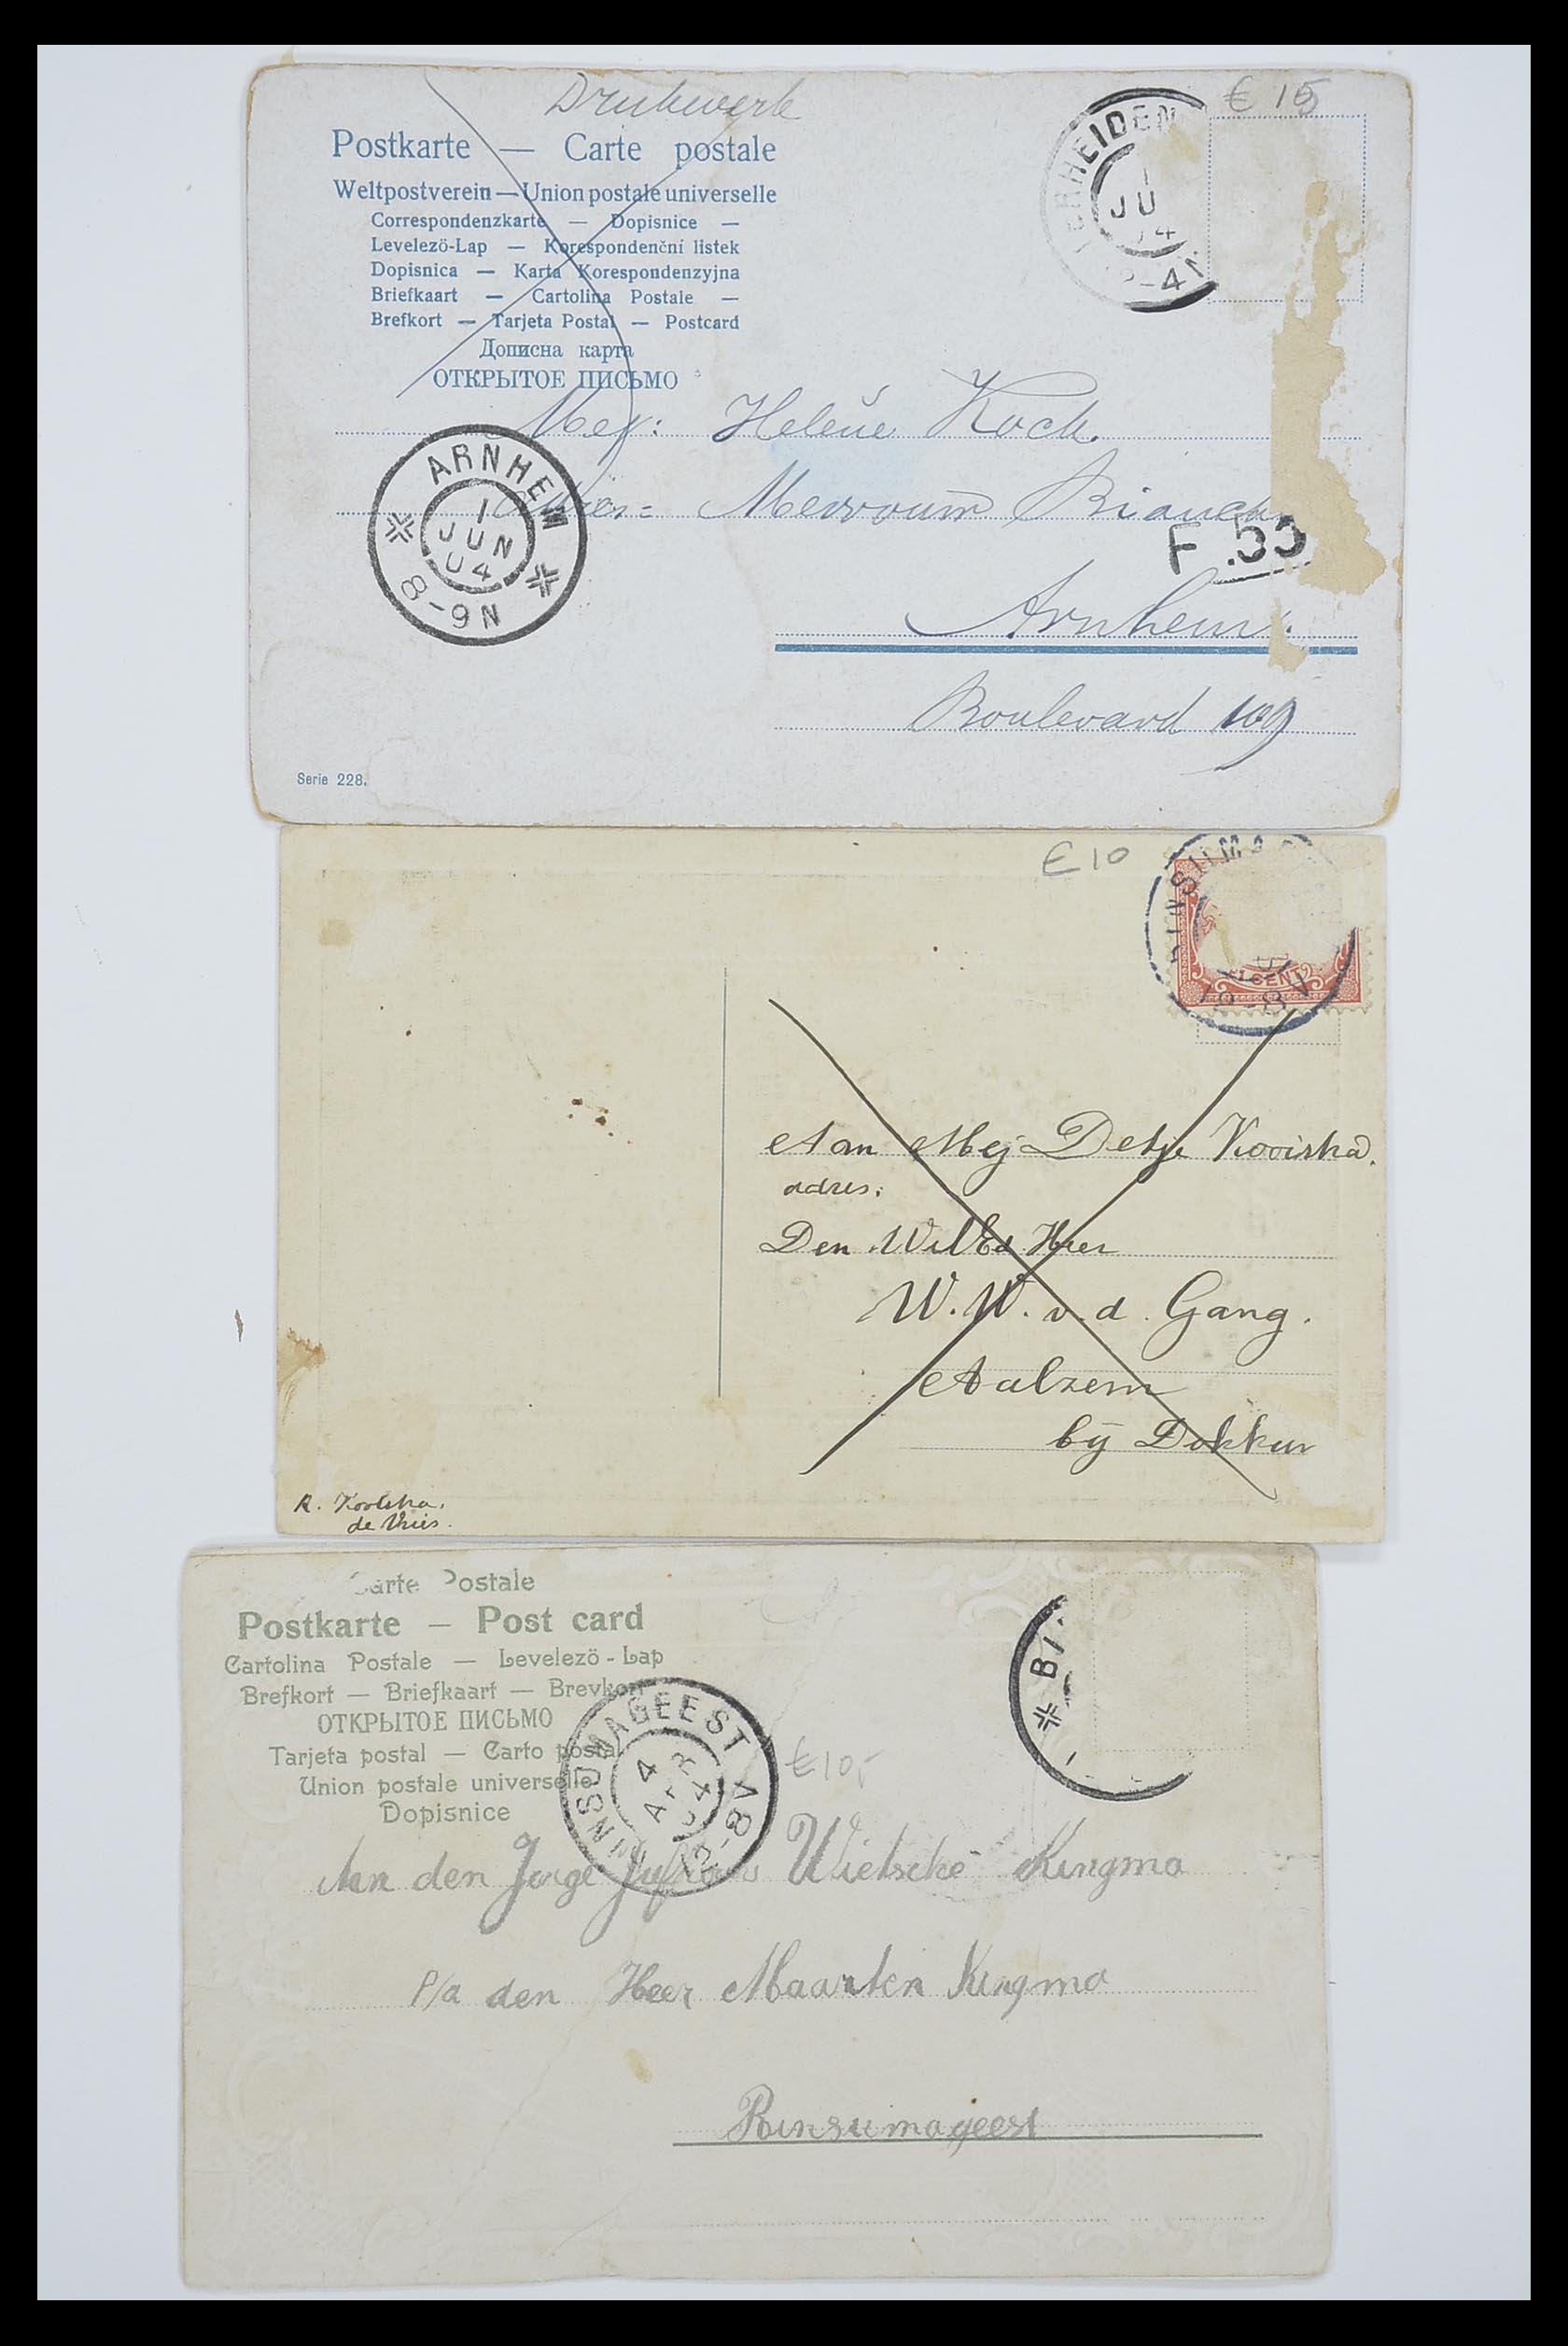 Drukwerk
€ 15
Postkarte — Carte postale
Weltpostverein — Union postale universelle
Correspondenzkarte — Dopisnice —
Levelező-Lap — Korespondenční listek
Dopisnica — Karta Korespondenzyjna
Briefkaart — Cartolina Postale —
Brefkort — Tarjeta Postal — Postcard
Дописна карта
ОТКРЫТОЕ ПИСЬМО
HEIDEN
1
JU
04
-4N
Mej: Helene Koch.
Adres: Mevrouw
F.
Arnhem.
Boulevard 109
ARNHEM
1
JUN
04
8-9N
Serie 228.
€ 10
CENT
-8V
Aan Mej Detje Kooistra.
adres:
Den WelEd Heer
W. W. v. d. Gang.
Aalzem
bij Dokkum
R. Kooistra.
de Vries.
Carte Postale
Postkarte — Post card
Cartolina Postale — Levelező-Lap
Brefkort — Briefkaart — Brevkort
ОТКРЫТОЕ ПИСЬМО
Tarjeta postal — Carto postal
Union postale universelle
Dopisnice
NSUMAGEEST
4
APR
04
-8V
€10,-
Aan den Jonge Juffrouw Wietsche Kingma
P/a den Heer Maarten Kingma
Rinsumageest